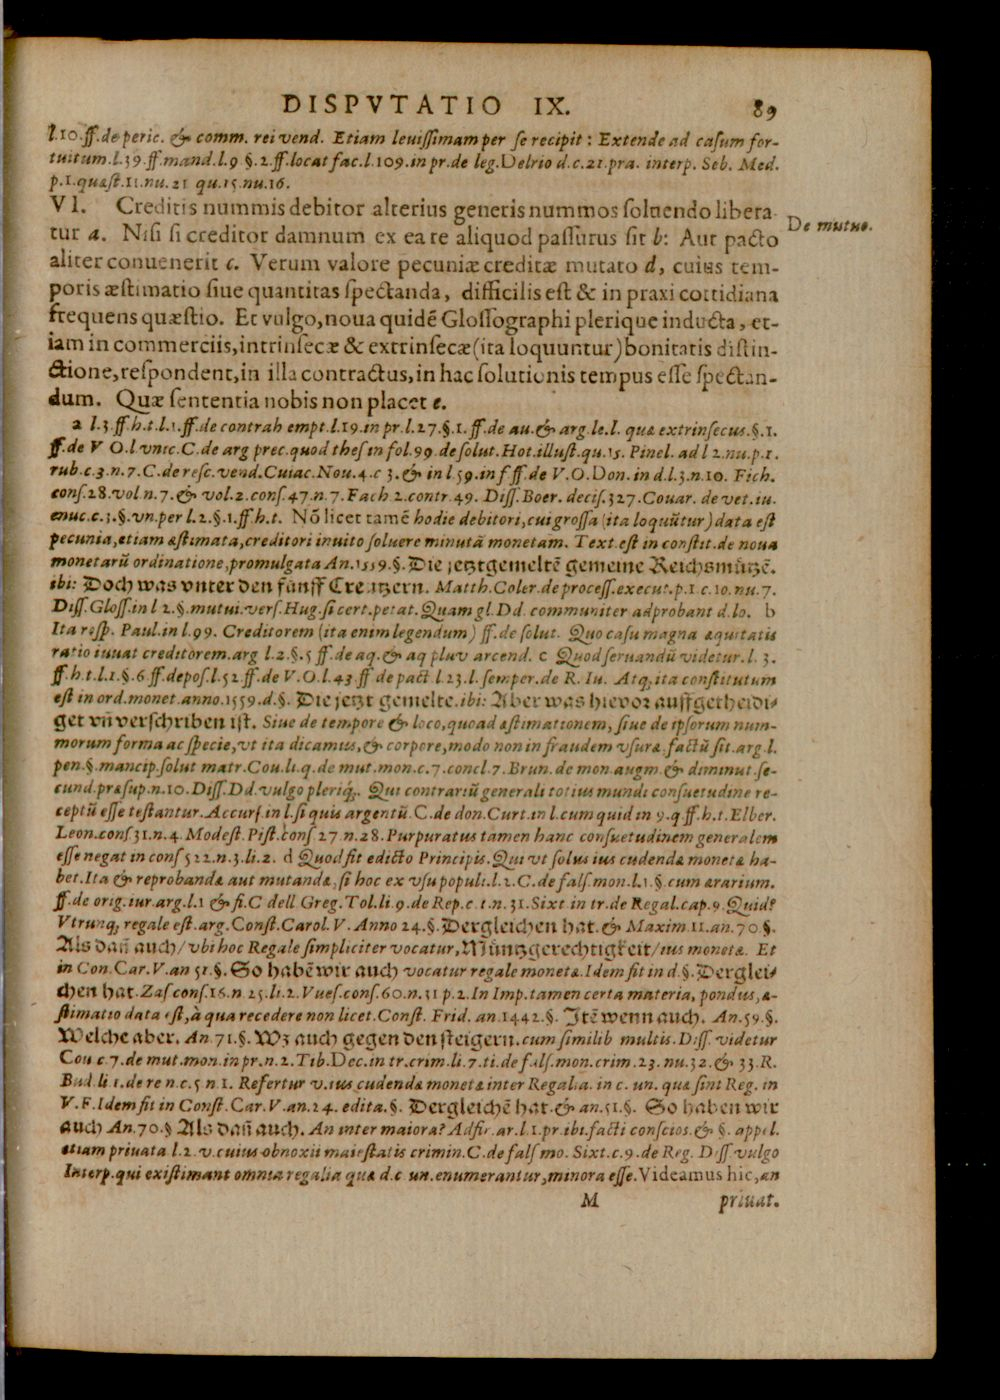 DISPVTATIO IX. 89
l.10.ff.de peric. & comm. rei vend. Etiam leuissimam per se recipit: Extende ad casum for-
tuitum.l.39.ff.mand.l.9 §.2.ff.locat fac.l.109.in pr.de leg.Delrio d.c.21.pra. interp. Seb. Med.
p.1.quæst.11.nu.21 qu.15.nu.16.
VI. Creditis nummis debitor alterius generis nummos soluendo libera-
tur a. Nisi si creditor damnum ex ea re aliquod passurus sit b: Aut pacto
De mutuo.
aliter conuenerit c. Verum valore pecuniæ creditæ mutato d, cuius tem-
poris æstimatio siue quantitas spectanda, difficilis est & in praxi cottidiana
frequens quæstio. Et vulgo, noua quidē Glossographi plerique inducta, et-
iam in commerciis, intrinsecæ & extrinsecæ (ita loquuntur) bonitatis distin-
ctione, respondent, in illa contractus, in hac solutionis tempus esse spectan-
dum. Quæ sententia nobis non placet e.
a l.3.ff.h.t.l.1.ff.de contrah empt.l.19.in pr.l.27.§.1.ff.de au.& arg.le.l. quæ extrinsecus.§.1.
ff.de V O.l vnic.C.de arg prec.quod thes in fol.99.de solut.Hot.illust.qu.15. Pinel. ad l 2.nu.p.1.
rub.c.3.n.7.C.de resc.vend.Cuiac.Nou.4.c 3.& in l 59.in f.ff.de V.O.Don.in d.l.3.n.10. Fich.
cons.28.vol n.7.& vol.2.cons.47.n.7.Fach 2.contr.49. Diss.Boer. decis.327.Couar. de vet.iu.
enuc.c.3.§.vn.per l.2.§.1.ff.h.t. Nō licet tamē hodie debitori, cui grossa (ita loquūtur) data est
pecunia, etiam æstimata, creditori inuito soluere minutā monetam. Text.est in constit.de noua
monetarū ordinatione, promulgata An.1559.§.Die jetztgemeltē gemeine Reichsmüntzē.
ibi: Doch was vnter den fünff Creutzern. Matth.Coler.de process.execut.p.1 c.10.nu.7.
Diss.Gloss.in l 2.§.mutui.vers.Hug.si cert.petat.Quam gl.Dd communiter adprobant d.lo. b
Ita resp. Paul.in l.99. Creditorem (ita enim legendum) ff.de solut. Quo casu magna æquitatis
ratio iuuat creditorem.arg l.2.§.5 ff.de aq.& aq pluv arcend. c Quod seruandū videtur.l.3.
ff.h.t.l.1.§.6 ff.depos.l.52.ff.de V.O.l.43.ff de pact l.23.l.semper.de R. Iu. Atq, ita constitutum
est in ord.monet.anno.1559.d.§. Die jetzt gemelte.ibi: Aber was hievor auffgetheidi-
get vñ verschriben ist. Siue de tempore & loco, quoad æstimationem, siue de ipsorum num-
morum forma ac specie, vt ita dicamus, & corpore, modo non in fraudem vsuræ factū sit.arg.l.
pen.§.mancip.solut matr.Cou.li.q.de mut.mon.c.7.concl.7.Brun.de mon.augm.& diminut.se-
cund.præsup.n.10.Diss.Dd.vulgo pleriq;. Qui contrariū generali totius mundi consuetudine re-
ceptū esse testantur.Accurs.in l.si quis argentū.C.de don.Curt.in l.cum quid in 9.q ff.h.t.Elber.
Leon.cons 31.n.4.Modest.Pist.cons 27.n.28.Purpuratus tamen hanc consuetudinem generalem
esse negat in cons 522.n.3.li.2. d Quod fit edicto Principis.Qui vt solus ius cudendæ monetæ ha-
bet.Ita & reprobandæ aut mutandæ, si hoc ex vsu populi.l.2.C.de fals.mon.l.1.§.cum ærarium.
ff.de orig.iur.arg.l.1 & fi.C dell Greg.Tol.li.9.de Rep.c.t.n.31.Sixt in tr.de Regal.cap.9.Quid?
Vtrunq, regale est.arg.Const.Carol.V.Anno 24.§.Dergleichen hat.& Maxim.II.an.70.§.
Als dañ auch/vbi hoc Regale simpliciter vocatur, Müntzgerechtigkeit/ius monetæ. Et
in Con.Car.V.an 51.§.So habē wir auch vocatur regale monetæ.Idem fit in d.§.Derglei-
chen hat.Zas cons.16.n 25.li.2.Vues.cons.60.n.31 p.2.In Imp.tamen certa materia, pondus, æ-
stimatio data est, à qua recedere non licet.Const. Frid. an.1442.§. Itē wenn auch. An.59.§.
Welche aber. An.71.§.Wz auch gegen den steigern.cum similib multis.Diss. videtur
Cou c.7.de mut.mon.in pr.n.2.Tib.Dec.in tr.crim.li.7.ti.de fals.mon.crim.23.nu.32.& 33.R.
Bud.li 1.de re n.c.5 n.1. Refertur v.ius cudendæ monetæ inter Regalia. in c. un. quæ sint Reg. in
V.F.Idem fit in Const.Car.V.an.24. edita.§. Dergleichē hat.& an.51.§. So haben wir
auch An.70.§ Als dañ auch. An inter maiora? Adfir.ar.l.1.pr.ibi.facti conscios.& §. appel.
etiam priuata l.2.v.cuius obnoxii maiestatis crimin.C.de fals mo. Sixt.c.9.de Reg. Diss.vulgo
Interp.qui existimant omnia regalia quæ d.c un.enumerantur, minora esse. Videamus hic, an
M priuat.